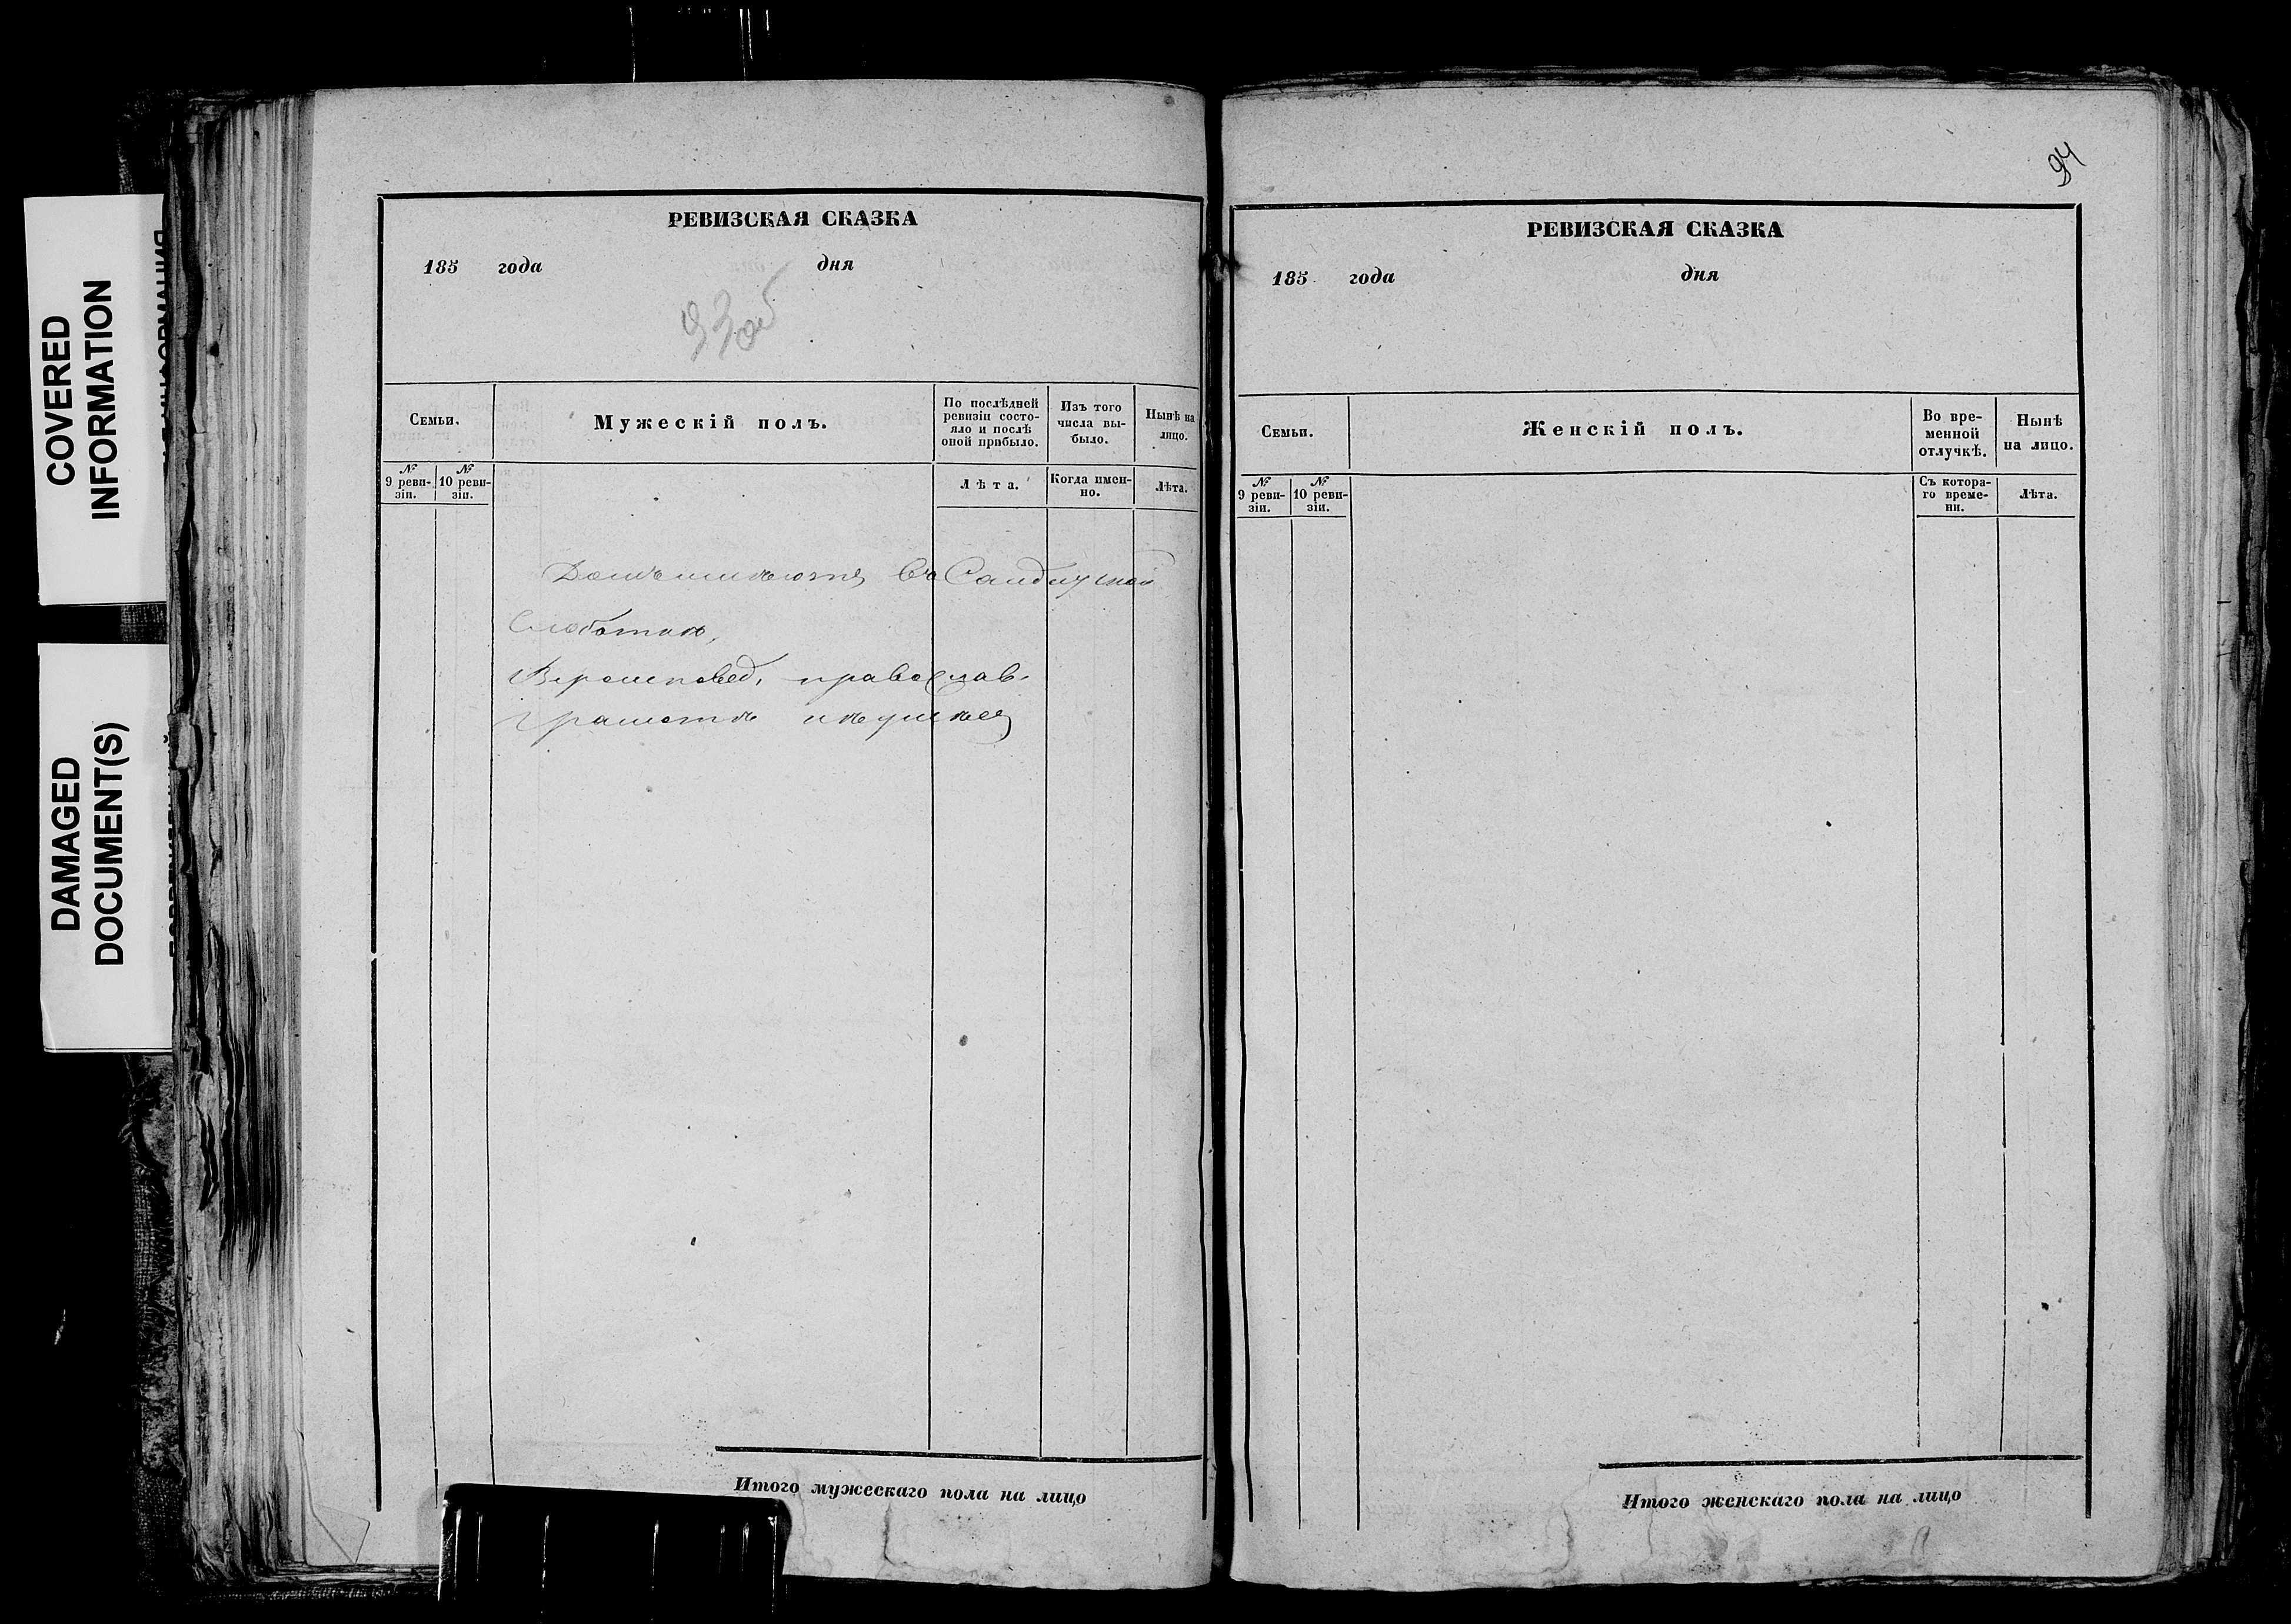 COVERED
INFORMATION
DAMAGED
DOCUMENT(S)
РЕВИЗСКАЯ СКАЗКА
185 года дня
93об
Семьи.
Мужескій полъ.
По послѣдней
ревизіи состо-
яло и послѣ
оной прибыло.
Изъ того
числа вы-
было.
Нынѣ на
лицо.
№
9 реви-
зіи.
№
10 реви-
зіи.
Лѣта.
Когда имен-
но.
Лѣта.
въ
Вероисповед. православ.
Грамоте
Итого мужескаго пола на лицо
94
РЕВИЗСКАЯ СКАЗКА
185 года дня
Семьи.
Женскій полъ.
Во вре-
менной
отлучкѣ.
Нынѣ
на лицо.
№
9 реви-
зіи.
№
10 реви-
зіи.
Съ котора-
го време-
ни.
Лѣта.
Итого женскаго пола на лицо